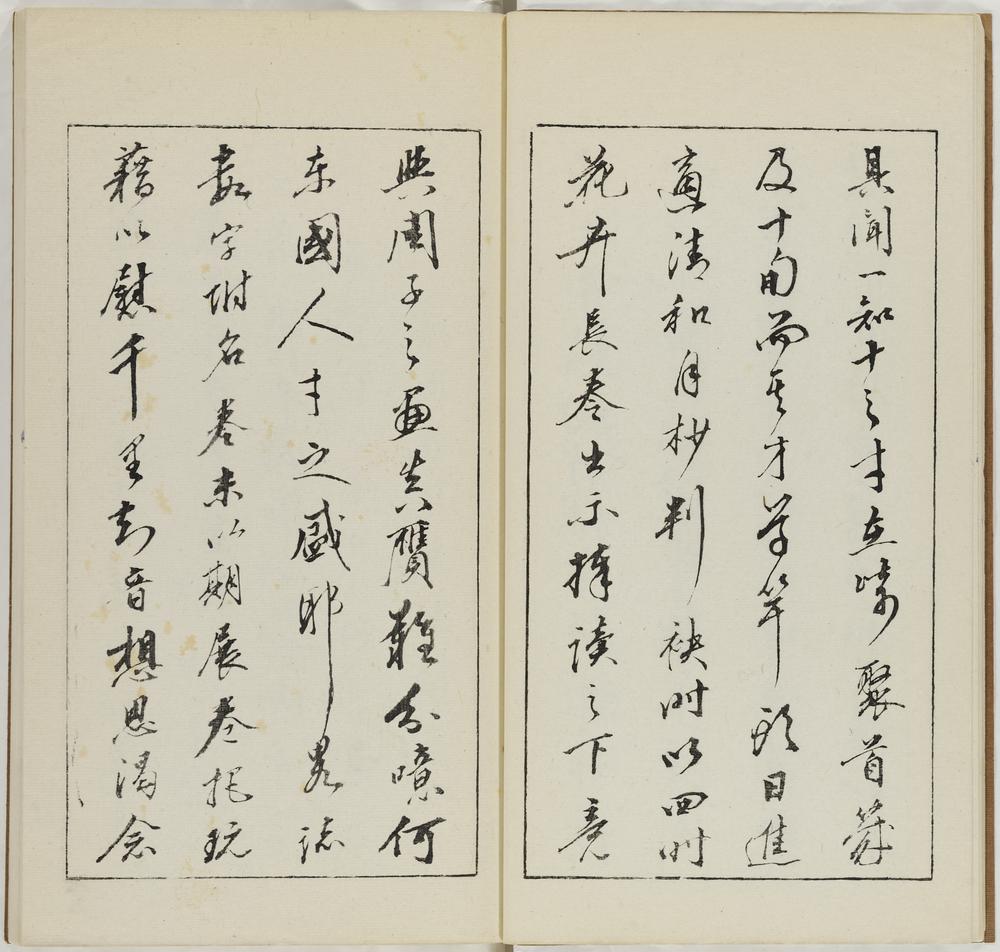 具聞一知十之才立時聚首觕
及十旬而其才學竿頭日進
適清和月杪判袂時以四時
花卉長卷出示捧讀之下竟
與周子之畫真贋難分噫何
东國人才之盛耶畧誌
數字附名卷末以期展卷把玩
藉以慰千里知音想思渴念